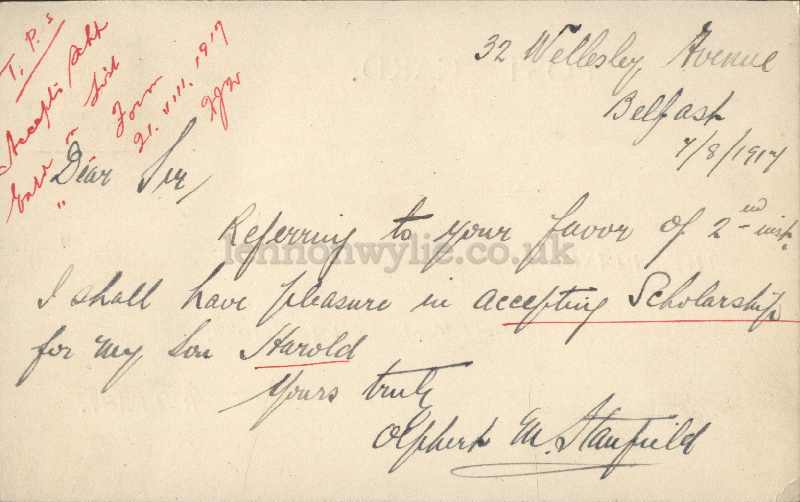 T. P. S
Accepts Schp
Card on List
" Form
21. VIII. 1917
32 Wellesley Avenue
Belfast
7/8/1917
Dear Sir,
Referring to your favor of 2nd inst.
lennonwylie.co.uk
I shall have pleasure in accepting Scholarship
for my son Harold
Yours truly
Olphert M. Stanfield